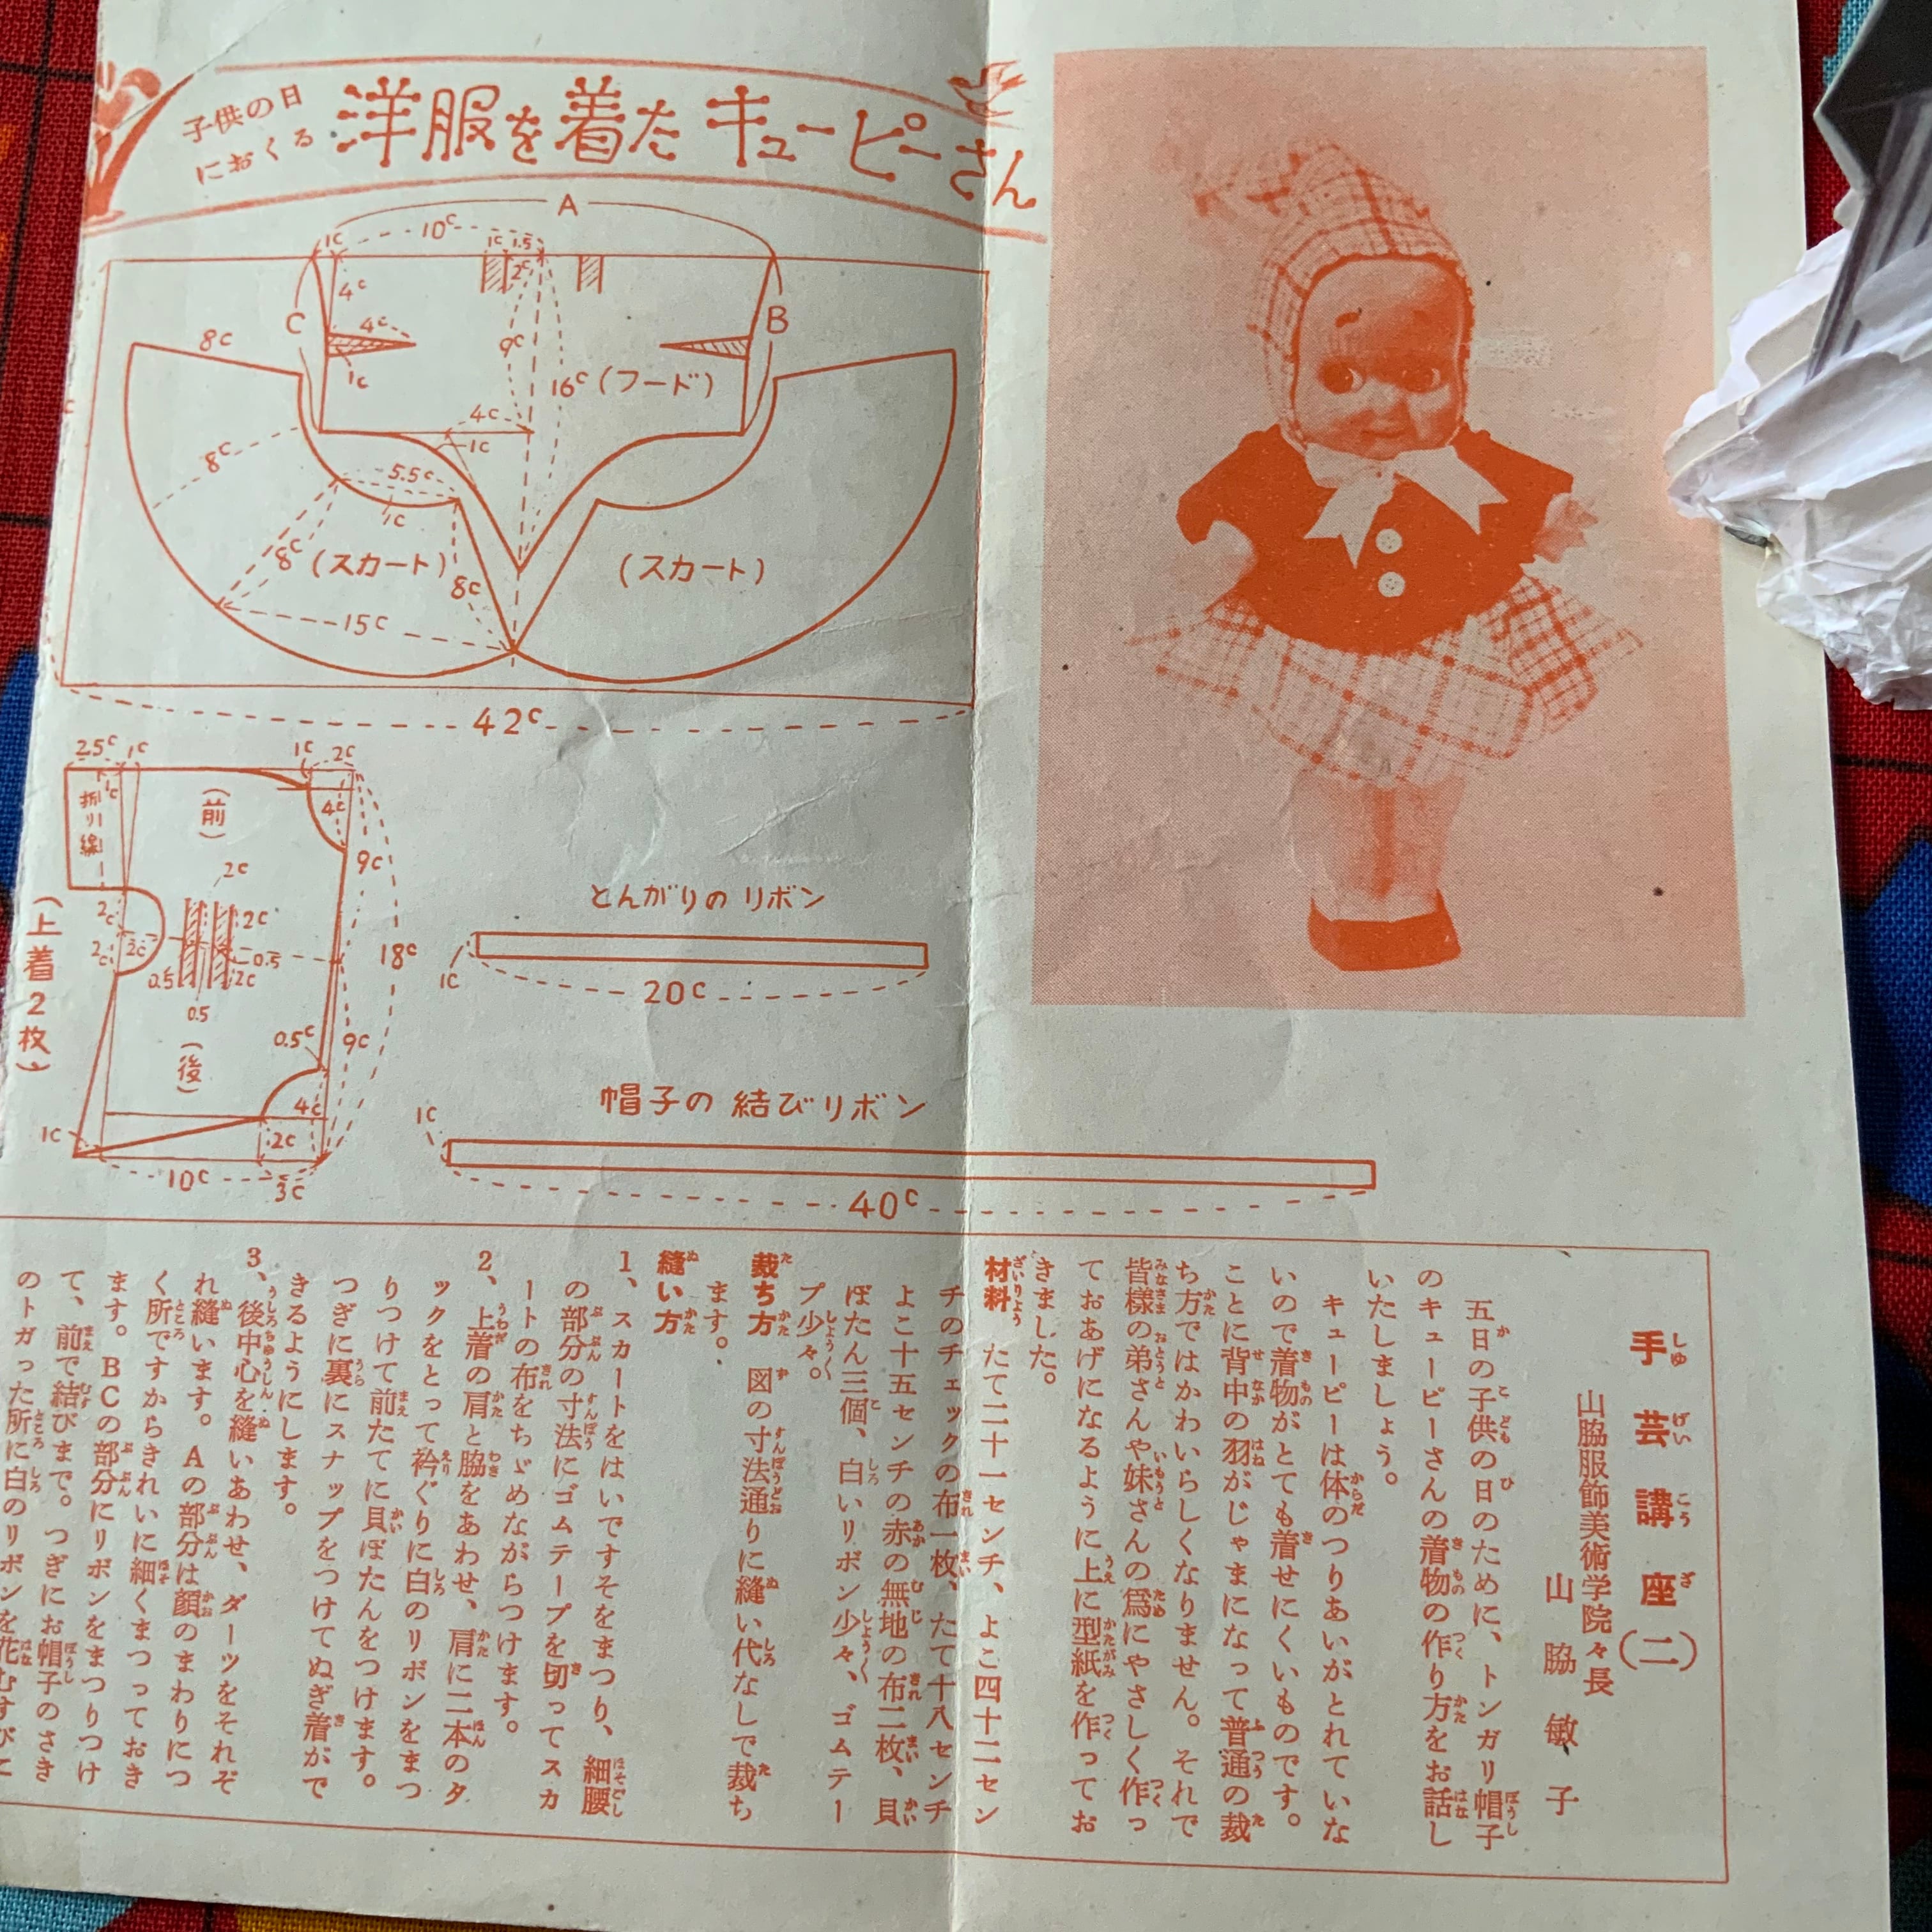 子供の日
におくる
洋服を着たキューピーさん
A
10c
1c
1c
1.5
2c
4c
C
B
4c
1c
8c
9c
16c(フード)
4c
1c
8c
5.5c
1c
8c(スカート)
8c
(スカート)
15c
42c
2.5c
1c
1c
2c
1c
折り線
(前)
4c
9c
2c
2c
2c
2c
2c
0.5
0.5
2c
0.5
18c
(上着2枚)
(後)
0.5c
9c
4c
1c
2c
10c
3c
とんがりのリボン
1c
20c
帽子の結びリボン
1c
40c
手芸講座(二)
山脇服飾美術学院々長
山脇敏子
五日の子供の日のために、トンガリ帽子
のキューピーさんの着物の作り方をお話し
いたしましょう。
キューピーは体のつりあいがとれていな
いので着物がとても着せにくいものです。
ことに背中の羽がじゃまになって普通の裁
ち方ではかわいらしくなりません。それで
皆様の弟さんや妹さんの為にやさしく作っ
ておあげになるように上に型紙を作ってお
きました。
材料 たて二十一センチ、よこ四十二セン
チのチェックの布一枚、たて十八センチ
よこ十五センチの赤の無地の布二枚、貝
ぼたん三個、白いリボン少々、ゴムテー
プ少々。
裁ち方 図の寸法通りに縫い代なしで裁ち
ます。
縫い方
1、スカートをはいですそをまつり、細腰
の部分の寸法にゴムテープを切ってスカ
ートの布をちゞめながらつけます。
2、上着の肩と脇をあわせ、肩に二本のタ
ックをとって衿ぐりに白のリボンをまつ
りつけて前たてに貝ぼたんをつけます。
つぎに裏にスナップをつけてぬぎ着がで
きるようにします。
3、後中心を縫いあわせ、ダーツをそれぞ
れ縫います。Aの部分は顔のまわりにつ
く所ですからきれいに細くまつっておき
ます。BCの部分にリボンをまつりつけ
て、前で結びまで。つぎにお帽子のさき
のトガった所に白のリボンを花むすびに